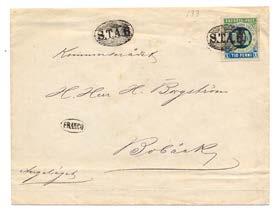 193
S.T.A.B
S.T.A.B
TIO PENNI
Kommerserådet
H. Herr H. Borgström
FRANCO
Bobäck
Angeläget